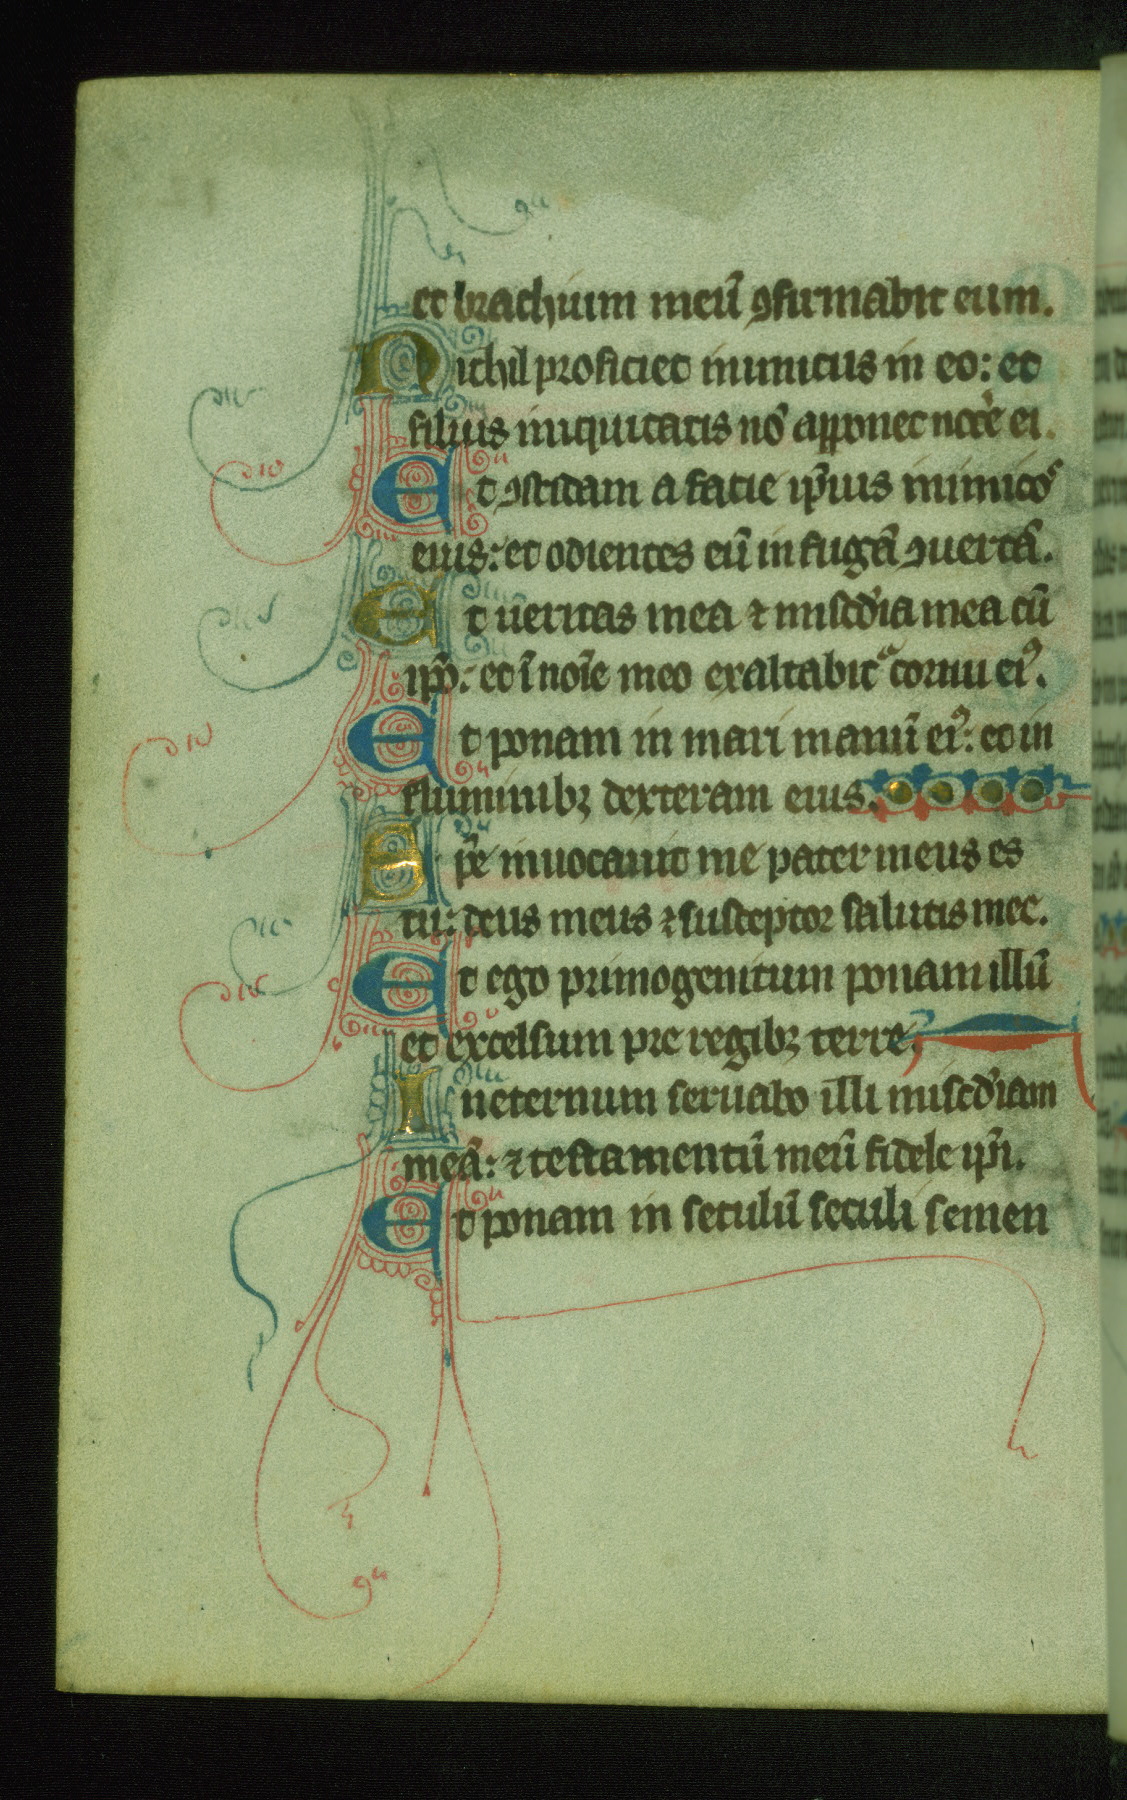 et brachium meū ꝯfirmabit eum.
Nichil proficiet inimicus in eo: et
filius iniquitatis nō apponet nocẽ ei.
Et ꝯcidam a facie ip̄ius inimicoꝝ
eius: et odientes eū in fugā ꝯuertā.
Et ueritas mea ⁊ mīscd'ia mea cū
ip̄o: et ī noīe meo exaltabit̉ cornu eiꝰ.
Et ponam in mari manū eiꝰ: et in
fluminibꝫ dexteram eius.
Ip̄e inuocauit me pater meus es
tu: deus meus ⁊ susceptor salutis mee.
Et ego primogenitum ponam illū
et excelsum pre regibꝫ terre.
Ineternum seruabo illi mīscd'iam
meā: ⁊ testamentū meū fidele ip̄i.
Et ponam in seculū seculi semen